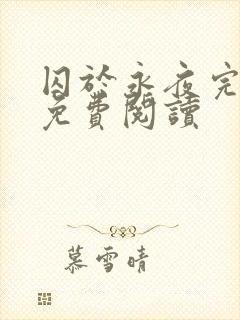 囚於永夜完
免費閱讀
慕雪晴